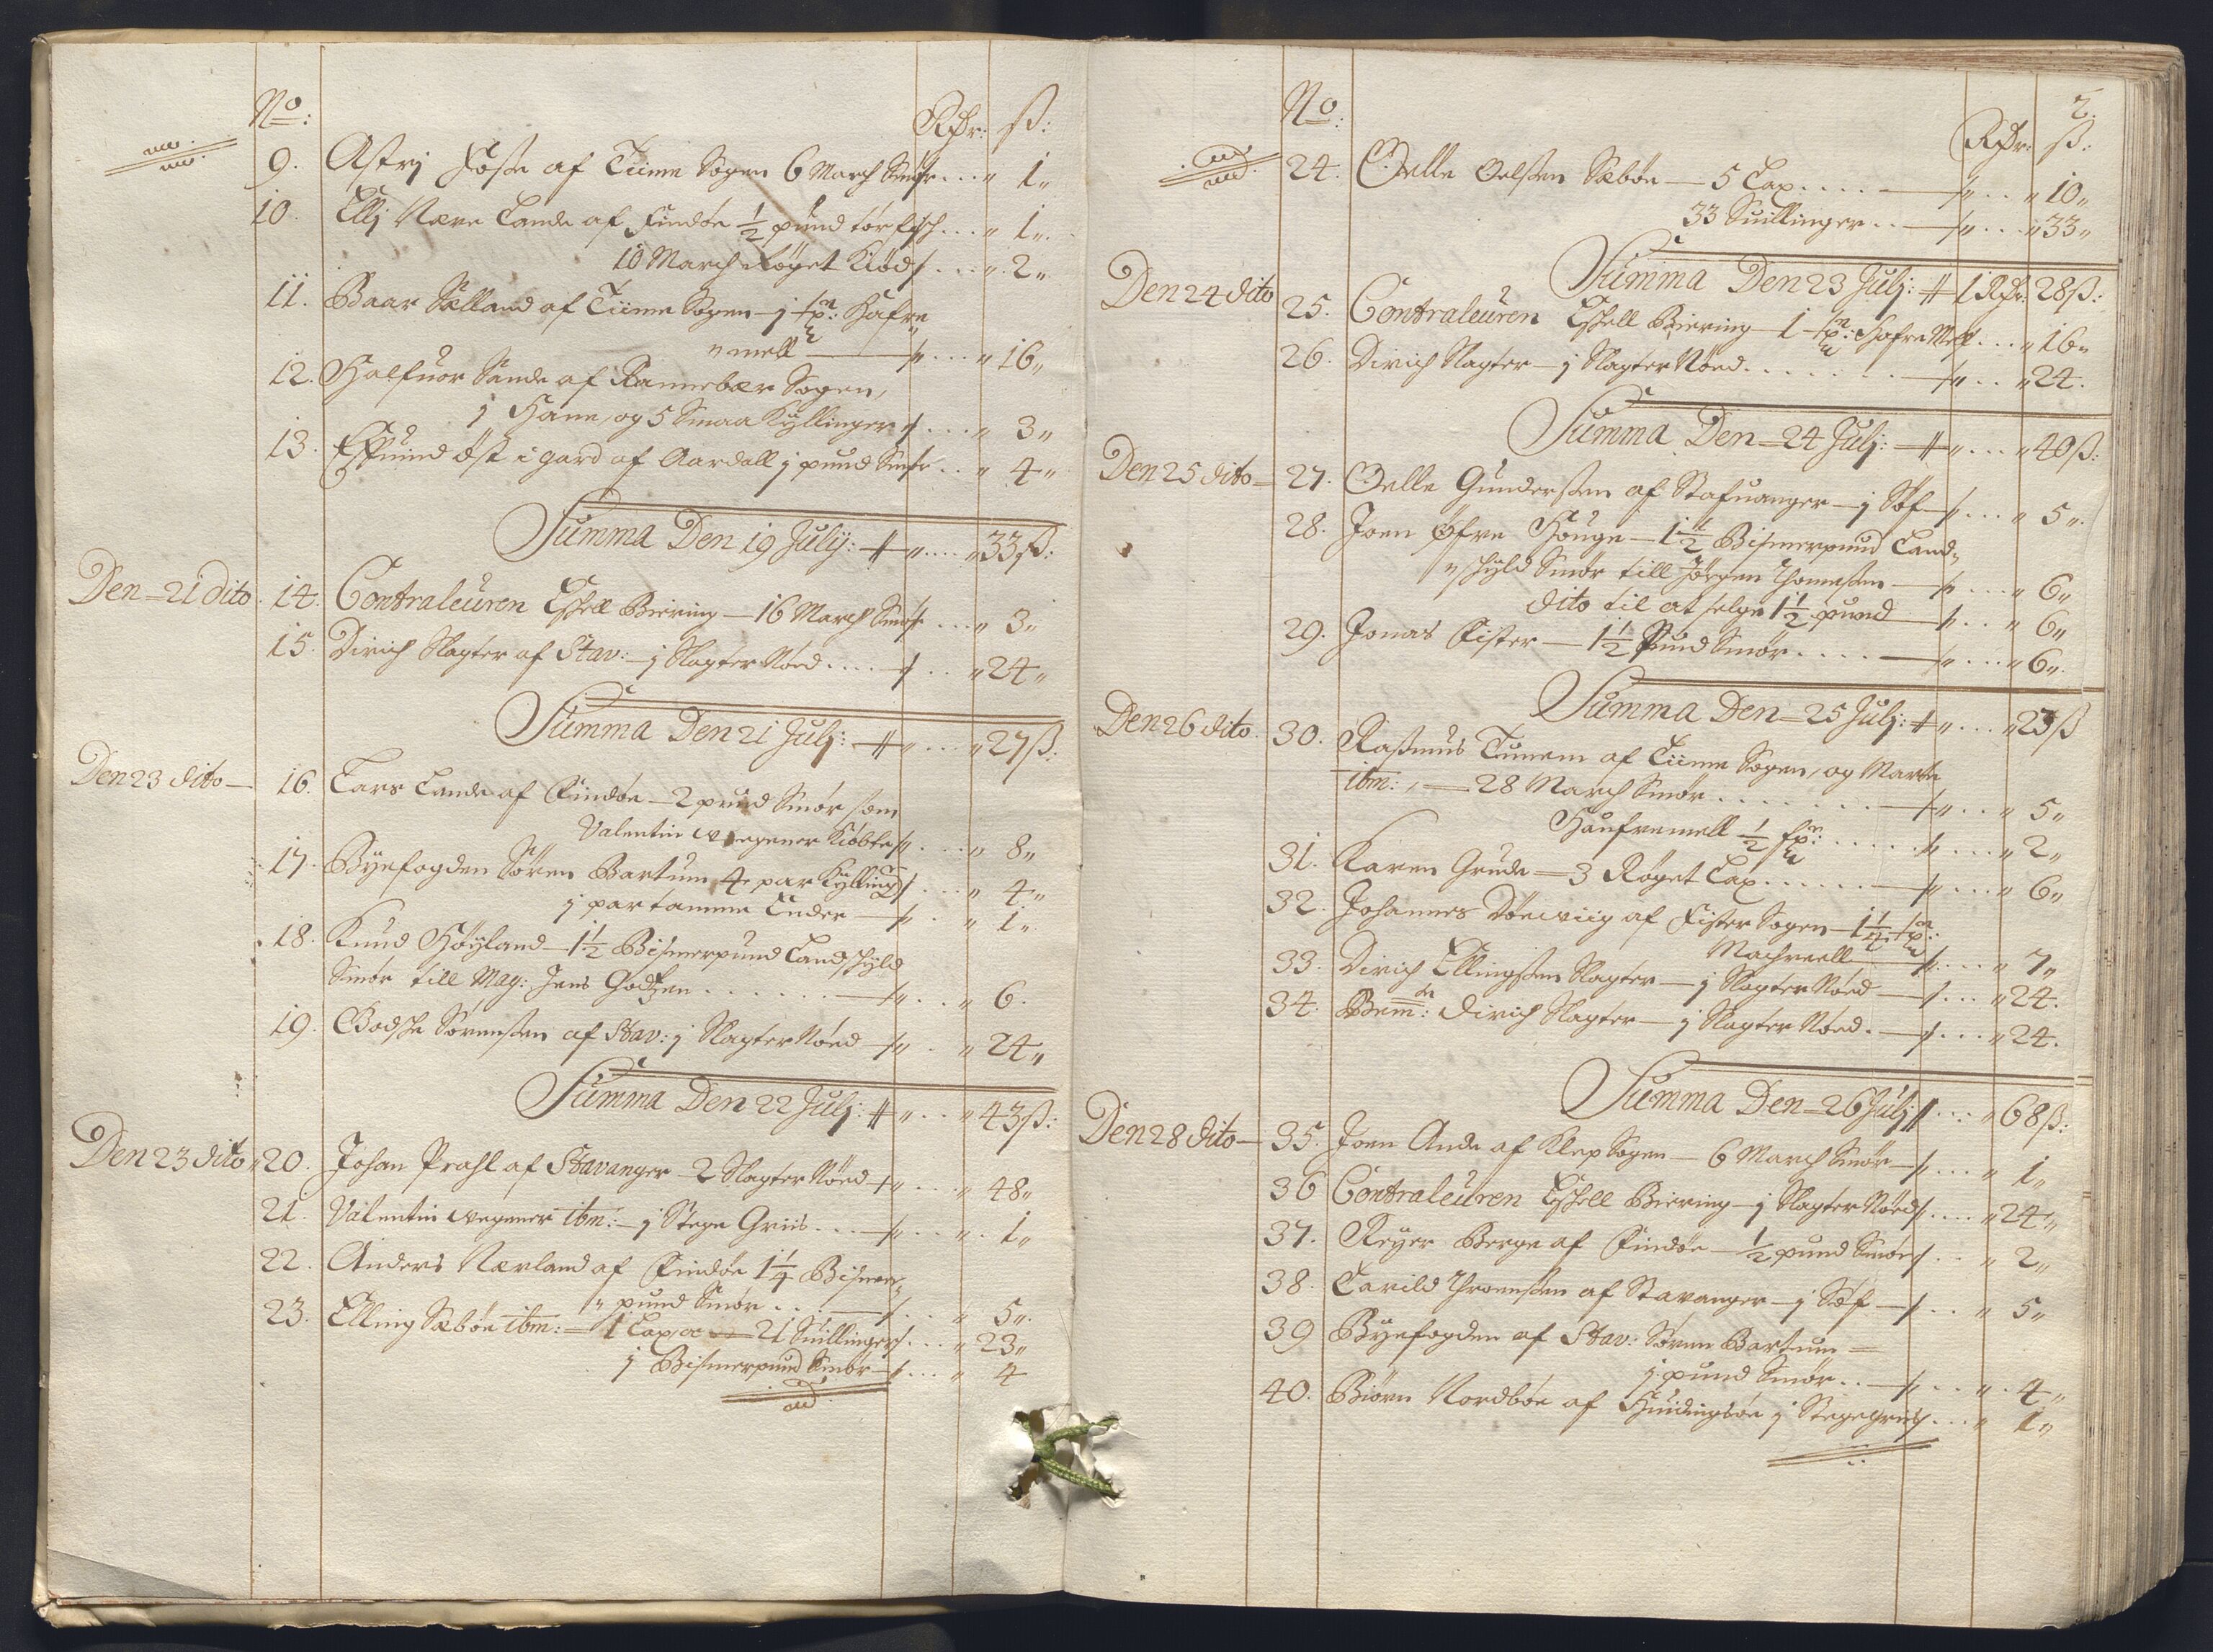 No:
Rdr: ß:
9. Astrj Foße af Tiime Sogen 6 March Smør ... " 1 "
10. Ellj Nære Lande af Findøe 1/2 pund tørfisch ... " 1 "
10 March Røget Kiød ... " 2 "
11. Baar Sælland af Tiime Sogen - j Hafre
" mell ... " 16 "
12. Halfuor Sande af Rannebær Sogen,
j Hane, og 5 Smaa Kyllinger ... " 3 "
13. Effuind Øst i gard af Aardall j pund Smør .. " 4 "
Summa Den 19 Julij: " .... " 33 ß:
Den 21 dito. 14. Contraleuren Eschell Biering - 16 March Smør ... " 3 "
15. Dirich Slagter af Stav: - j Slagter Nød .... " 24 "
Summa Den 21 Julj: " ... " 27 ß:
Den 23 dito - 16. Lars Lande af Findøe - 2 pund Smør som
Valentin Wegener Kiøbte ... " 8 "
17. Byefogden Søren Bartum 4 par Kylling ... " 4 "
j par tamme Ender - " . " 1 "
18. Knud Høyland - 1 1/2 Bismerpund Landschyld
Smør till Mag: Jens Godtzen ....... " .. " 6.
19. Godsche Sørensen af Stav: j Slagter Nød - " . " 24 "
Summa Den 22 Julj: " .. " 43 ß:
Den 23 dito " 20. Johan Prahl af Stavanger - 2 Slagter Nød - " ... " 48 "
21. Valentin Wegener ibm: - j Stege Griis ... " ... " 1 "
22. Anders Nærland af Findøe 1 1/4 Bismer=
" pund Smør ... " 5 "
23. Elling Sæbøe ibm: = 1 Lax, oc = 21 Suillinger ... " 23 "
j Bismerpund Smør ... " 4
2.
No:
Rdr: ß:
24. Oelle Oelsen Sæbøe - 5 Lax .... " .. " 10 "
33 Suillinger .. " ... " 33 "
Summa Den 23 Julj: 1 Rdr: 28 ß:
Den 24 dito 25. Contraleuren Eschell Biering - 1 Hafre Mell ... " 16 "
26. Dirich Slagter - j Slagter Nød ....... " .. " 24.
Summa Den 24 Julj: " ... " 40 ß:
Den 25 dito - 27. Oelle Gundersen af Stafuanger - j Søf ... " 5 "
28. Joen Øfre Houge - 1 1/2 Bismerpund Land=
" schyld Smør till Jørgen Thomesen - ... " 6 "
dito til at selge 1 1/2 pund - ... " 6 "
29. Jonas Fister - 1 1/2 Pund Smør .... " ... " 6 "
Summa Den 25 Julj: " ... " 23 ß
Den 26 dito. 30. Rasmus Tunem af Tiime Sogen, og Marte
ibm: , = 28 March Smør ....... " .. " 5 "
Haufremell 1/2 ..... " ... " 2 "
31. Karen Grude = 3 Røget Lax ...... " ... " 6 "
32. Johannes Døeuiig af Fister Sogen - 1 1/4
... " 7 "
33. Dirich Ellingsen Slagter - j Slagter Nød - ... " 24.
34. Bem:te Dirich Slagter - j Slagter Nød. - ... " 24.
Summa Den 26 Julj ... " 68 ß:
Den 28 dito - 35. Joen Ande af Klep Sogen - 6 March Smør - ... " 1 "
36 Contraleuren Eschell Biering - j Slagter Nød .... " 24 "
37. Reyer Berge af Findøe - 1/2 pund Smør .. " 2 "
38. Tarild Thronsen af Stavanger - j Søf - ... " 5 "
39 Byefogden af Stav: Søren Bartum =
j pund Smør .. " .. " 4 "
40. Biørn Nordbøe af Huidingsøe j Stegegriis ... " 1 "